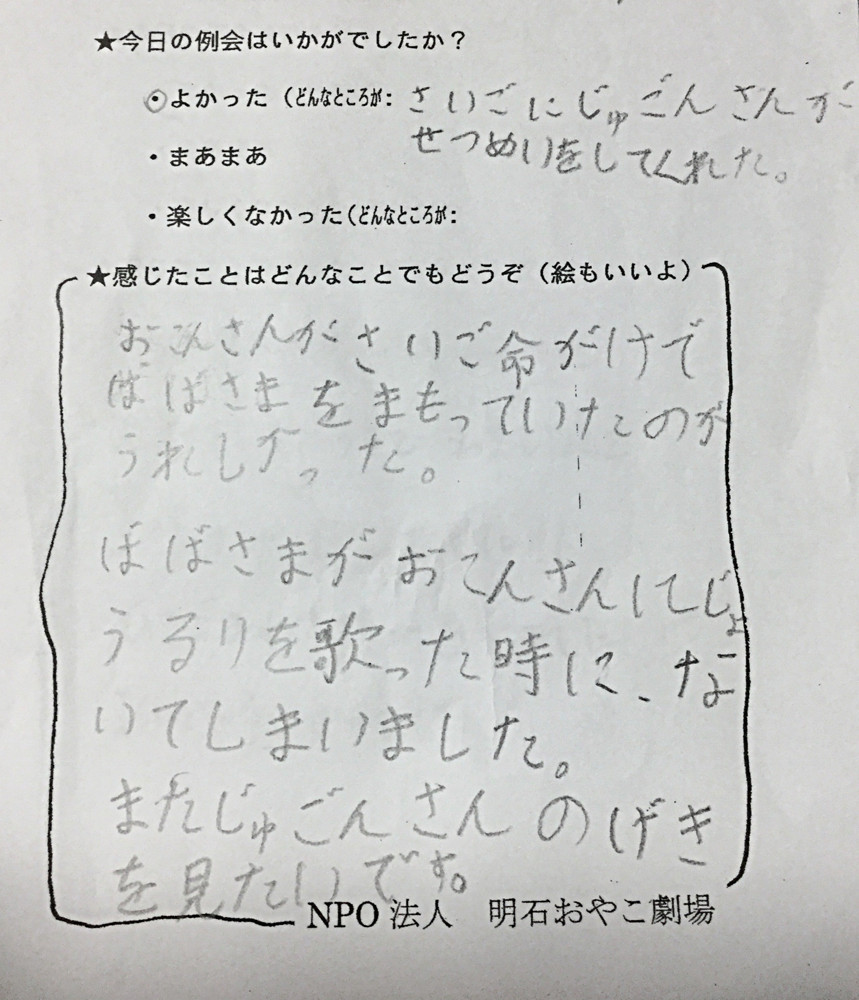 ★今日の例会はいかがでしたか？
・よかった（どんなところが：さいごにじゅごんさんが
せつめいをしてくれた。
・まあまあ
・楽しくなかった（どんなところが：
★感じたことはどんなことでもどうぞ（絵もいいよ）
おこんさんがさいご命がけで
ばばさまをまもっていたのが
うれしかった。
ばばさまがおこんさんにじょ
うるりを歌った時に、な
いてしまいました。
またじゅごんさんのげき
を見たいです。
NPO法人　明石おやこ劇場